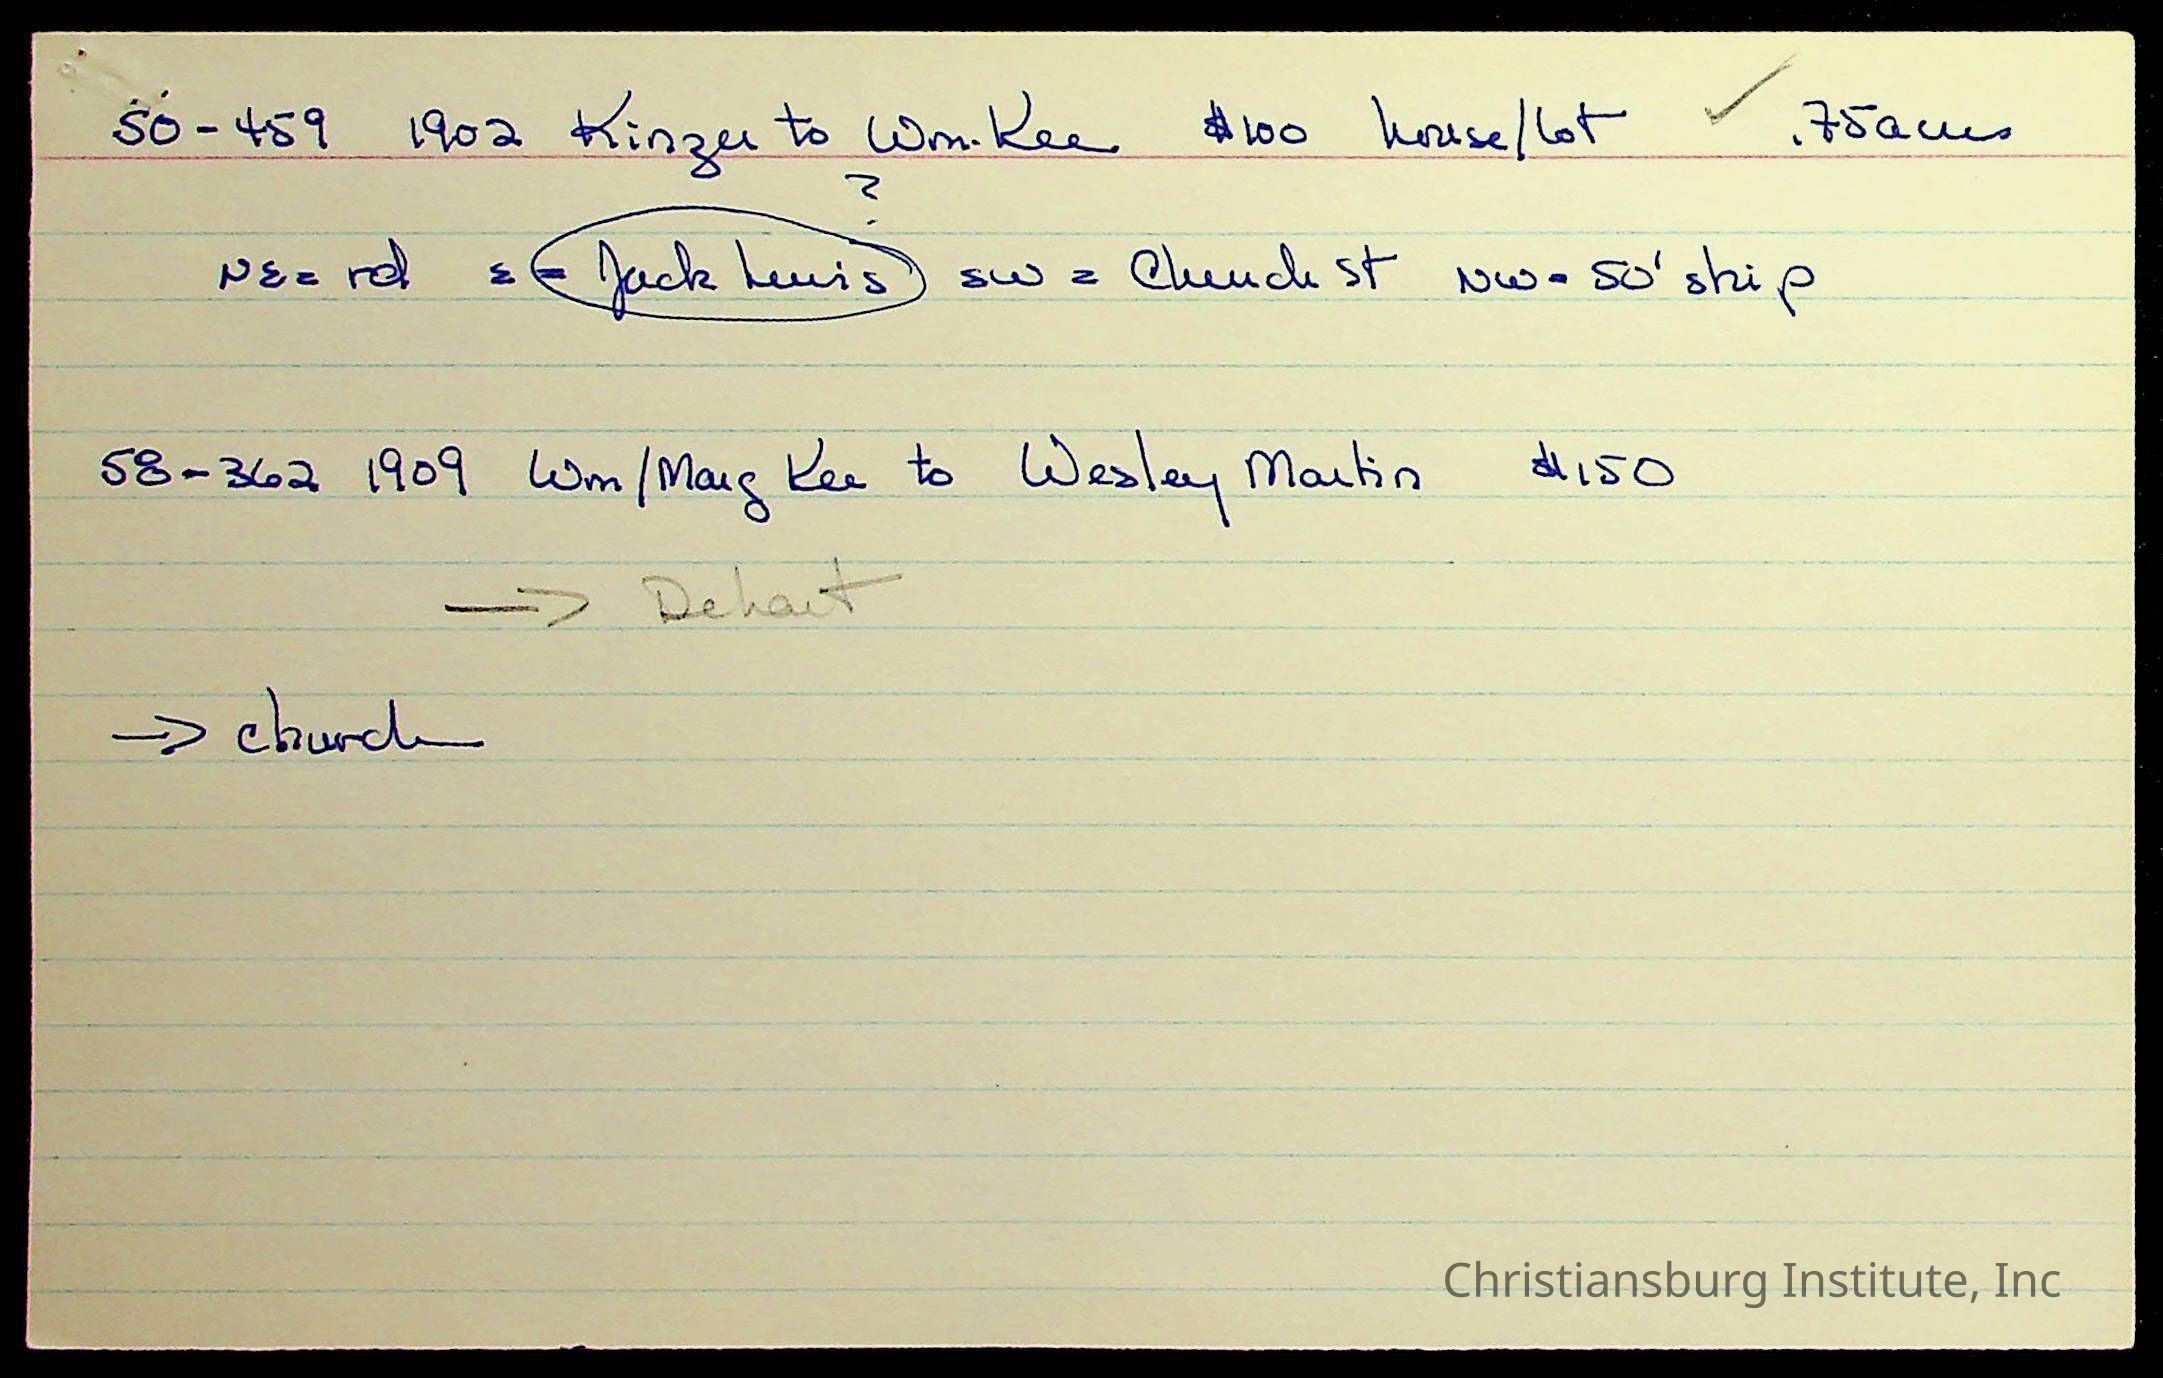 50-459 1902 Kinzer to Wm. Kee $100 house/lot ✓ .75 acres
?
NE = rd E = Jack Lewis SW = Church St NW = 50' strip
58-362 1909 Wm/Marg Kee to Wesley Martin $150
→ Dehart
→ church
Christiansburg Institute, Inc